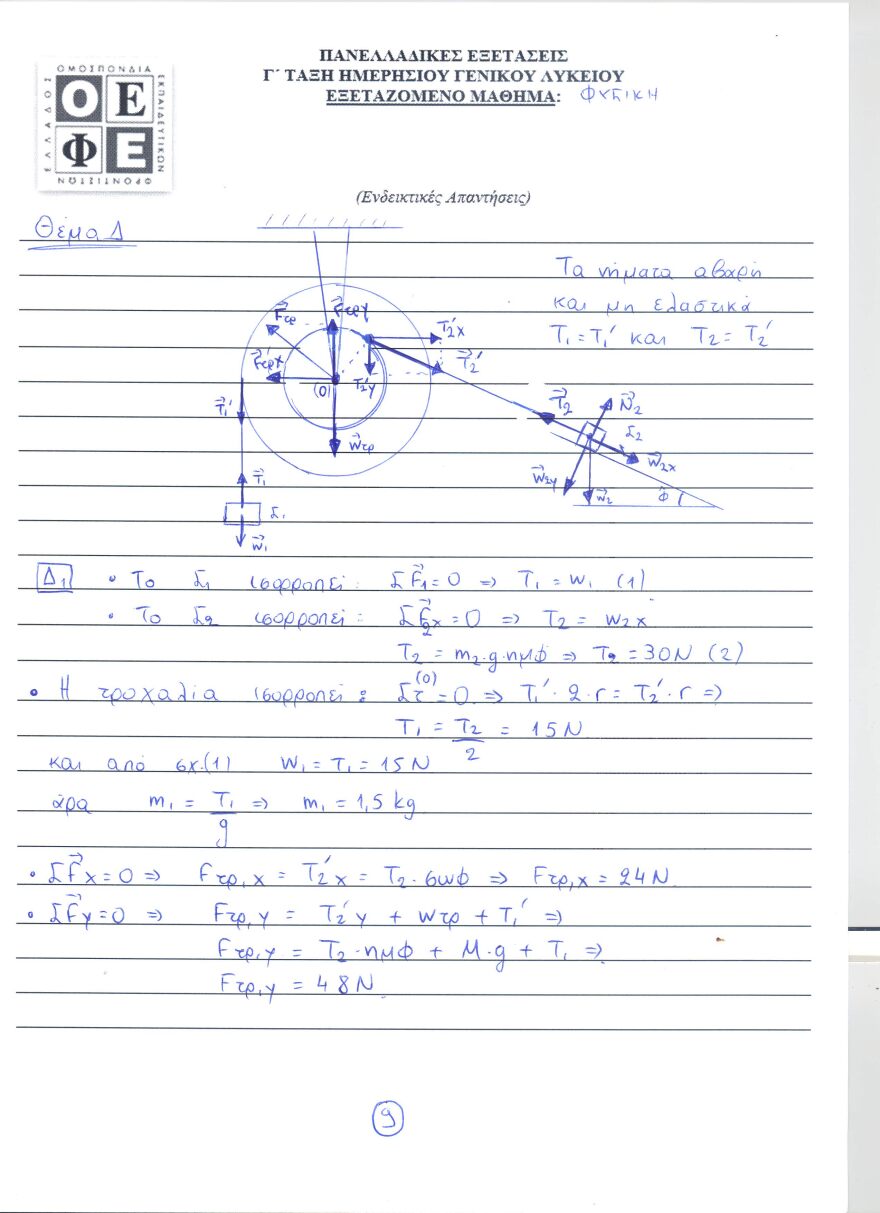 ΟΜΟΣΠΟΝΔΙΑ
ΕΚΠΑΙΔΕΥΤΙΚΩΝ
ΦΡΟΝΤΙΣΤΩΝ
ΕΛΛΑΔΟΣ
Ο Ε
Φ Ε
ΠΑΝΕΛΛΑΔΙΚΕΣ ΕΞΕΤΑΣΕΙΣ
Γ΄ ΤΑΞΗ ΗΜΕΡΗΣΙΟΥ ΓΕΝΙΚΟΥ ΛΥΚΕΙΟΥ
ΕΞΕΤΑΖΟΜΕΝΟ ΜΑΘΗΜΑ: ΦΥΣΙΚΗ
(Ενδεικτικές Απαντήσεις)
Θέμα Δ
Τα νήματα αβαρή
και μη ελαστικά
T₁ = T₁' και T₂ = T₂'
Fτρ
Fτρy
T₂'x
T₂'
Fτρx
(O)
T₂'y
T₁'
Wτρ
T₂
N₂
Σ₂
W₂x
W₂y
W₂
φ
T₁
Σ₁
W₁
Δ1 • Το Σ₁ ισορροπεί: ΣF₁ = 0 => T₁ = W₁ (1)
• Το Σ₂ ισορροπεί: ΣF₂x = 0 => T₂ = W₂x
T₂ = m₂·g·ημφ => T₂ = 30N (2)
• Η τροχαλία ισορροπεί: Στ⁽⁰⁾ = 0 => T₁'·2·r = T₂'·r =>
T₁ = T₂/2 = 15N
και από σχ.(1) W₁ = T₁ = 15N
άρα m₁ = T₁/g => m₁ = 1,5 kg
• ΣFx = 0 => Fτρ,x = T₂'x = T₂·συνφ => Fτρ,x = 24N
• ΣFy = 0 => Fτρ,y = T₂'y + Wτρ + T₁' =>
Fτρ,y = T₂·ημφ + M·g + T₁ =>
Fτρ,y = 48N
9